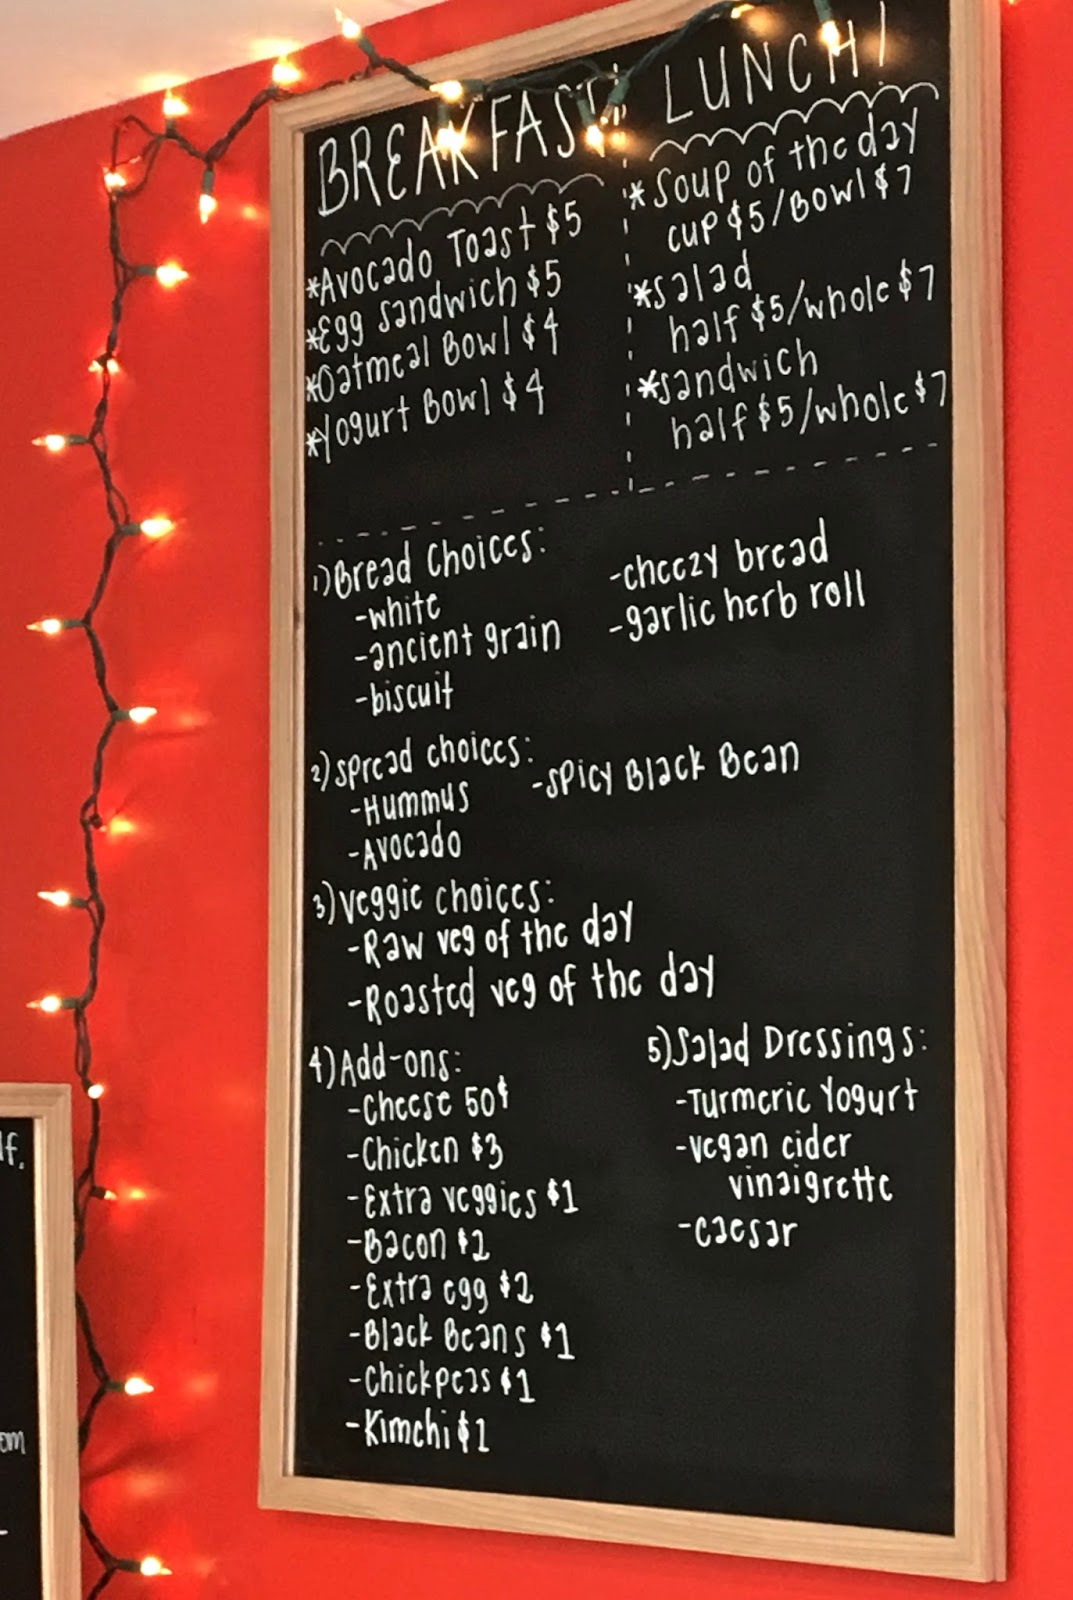 BREAKFAST!
*Avocado Toast $5
*Egg Sandwich $5
*Oatmeal Bowl $4
*Yogurt Bowl $4
LUNCH!
*Soup of the day
cup $5/Bowl $7
*salad
half $5/whole $7
*sandwich
half $5/whole $7
1) Bread choices:
-white
-ancient grain
-biscuit
-cheezy bread
-garlic herb roll
2) spread choices:
-Hummus
-Avocado
-spicy Black Bean
3) veggie choices:
-Raw veg of the day
-Roasted veg of the day
4) Add-ons:
-Cheese 50¢
-Chicken $3
-Extra veggies $1
-Bacon $2
-Extra egg $2
-Black Beans $1
-Chickpeas $1
-Kimchi $1
5) Salad Dressings:
-Turmeric Yogurt
-vegan cider
vinaigrette
-caesar